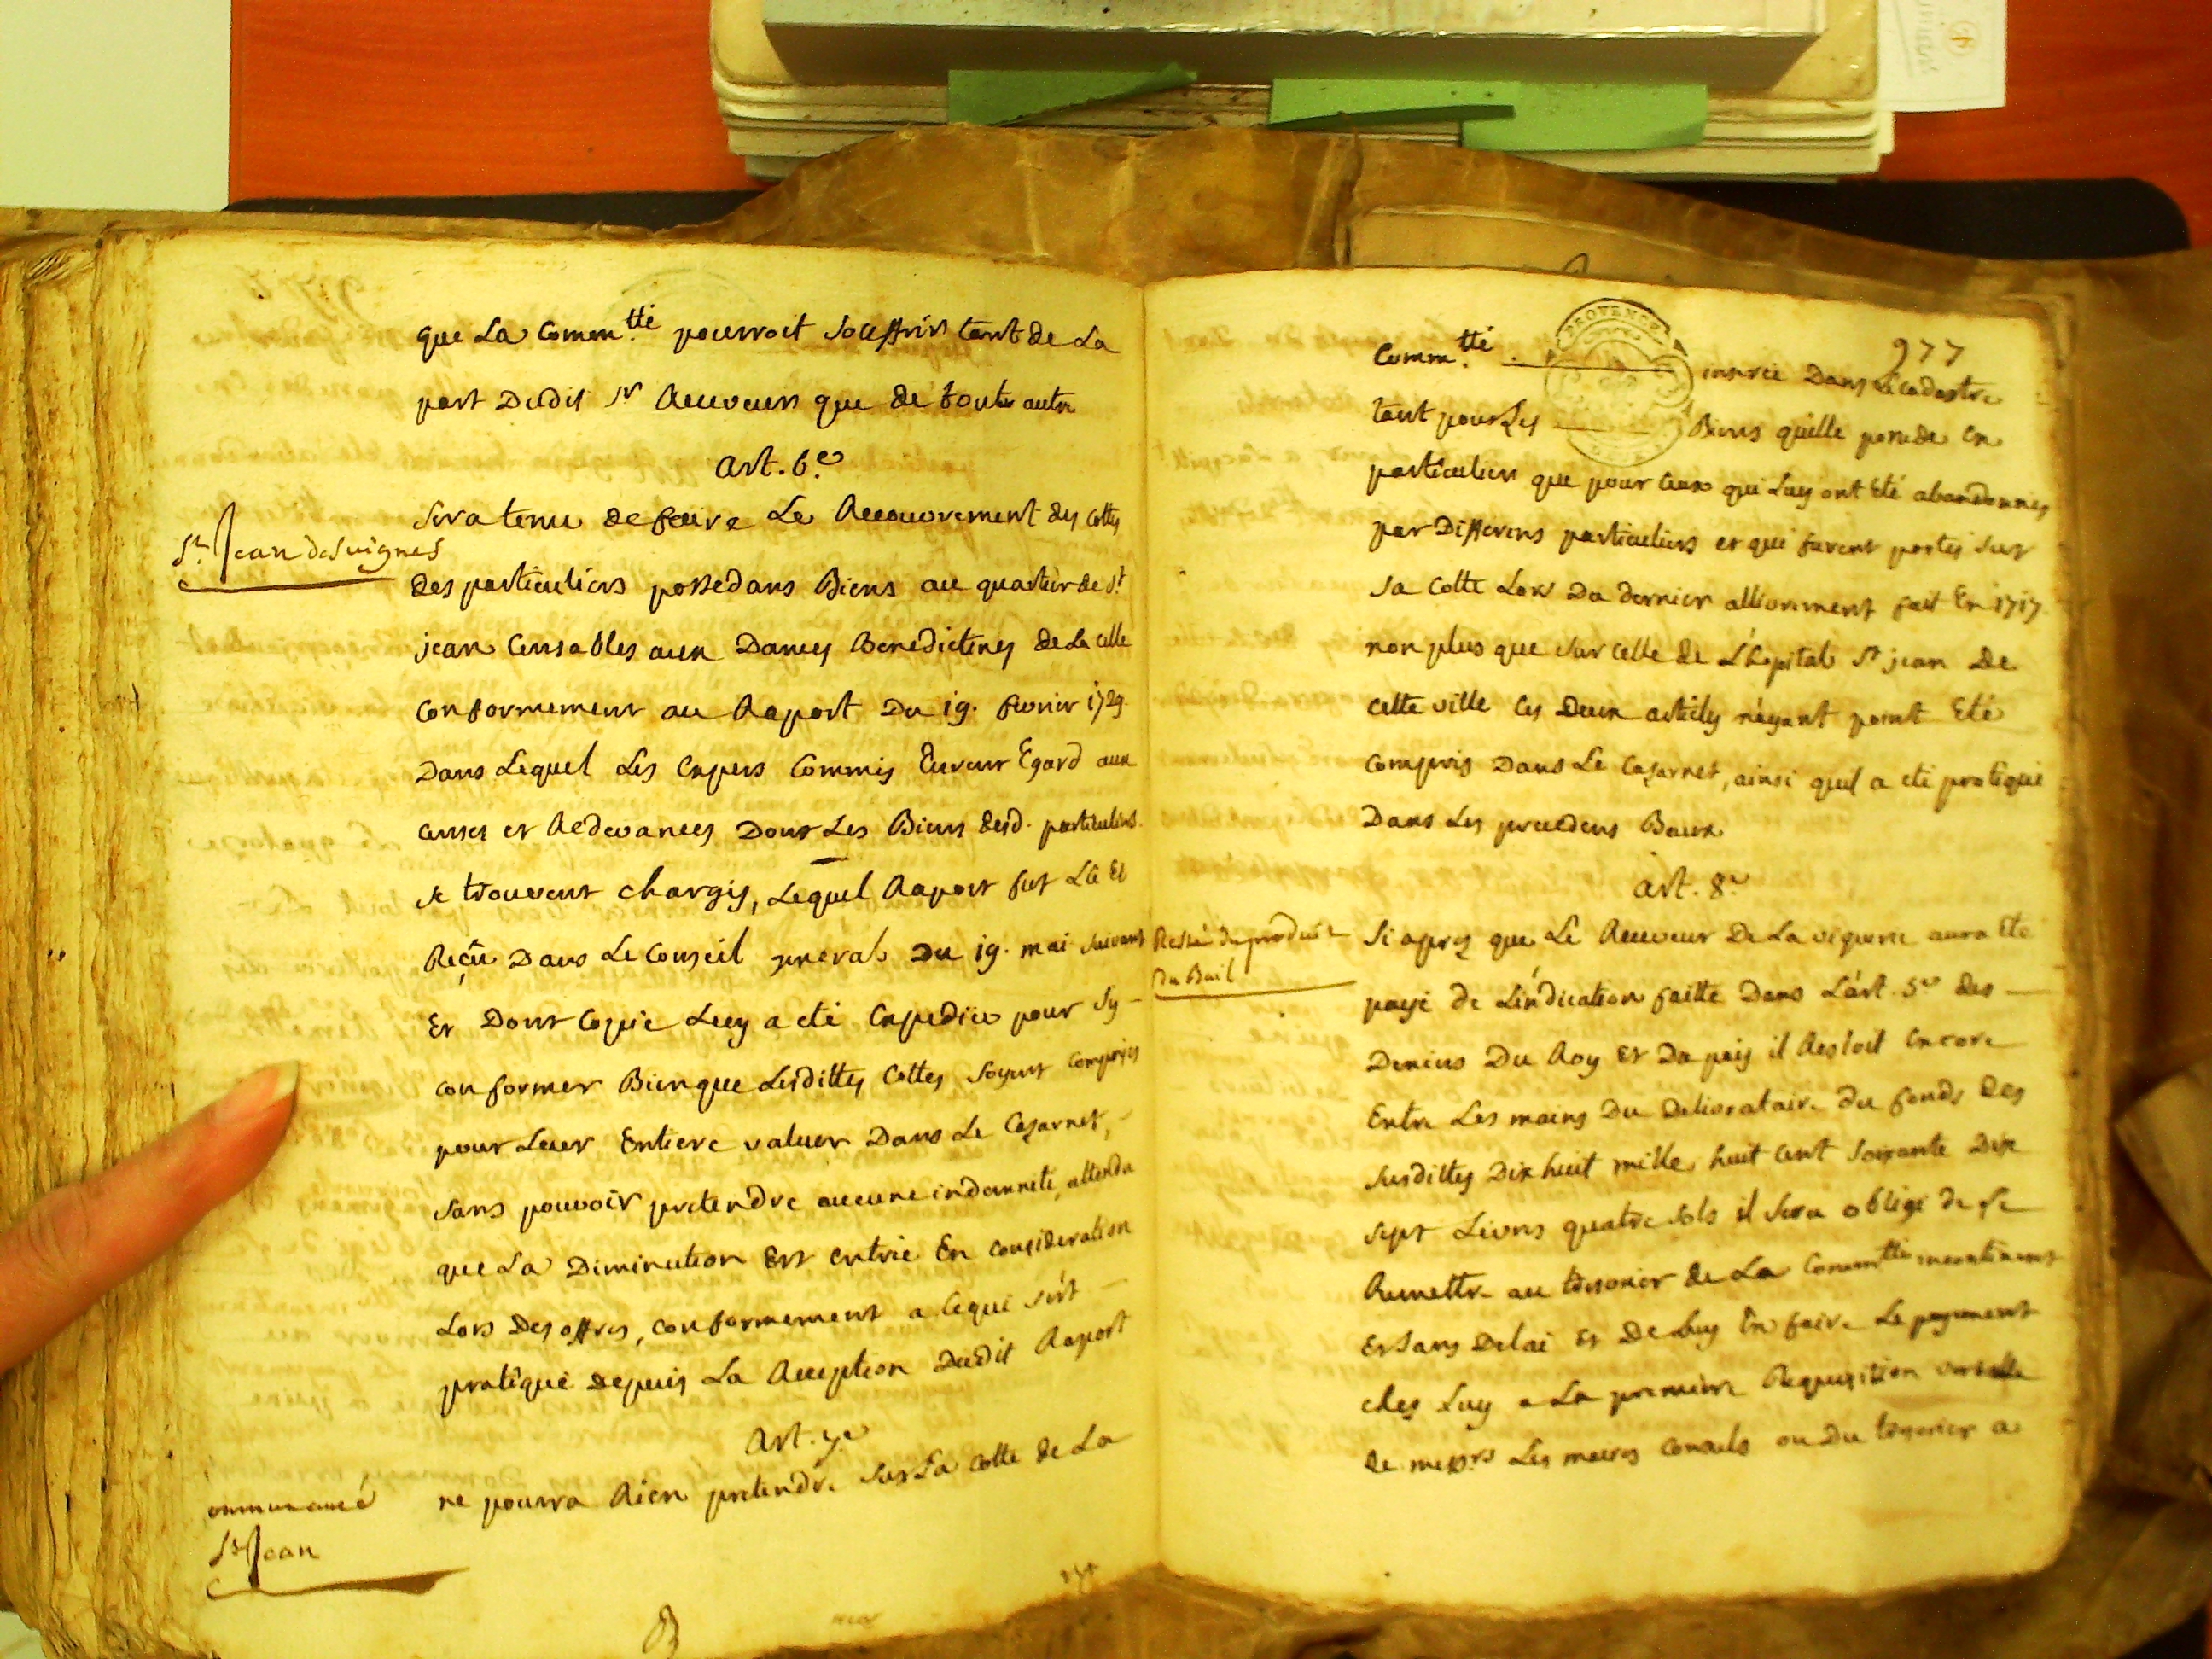 que La Comm.tté pourroit souffrir tant de La
part Dudit Sr Receveur que de toute autre
art. 6.e
St. Jean des vignes
Sera tenu de faire Le Recouvrement des cottes
des particuliers possedans Biens au quartier de St.
jean Censables aux Dames Benedictines de La celle
conformement au Raport Du 19. fevrier 1729.
Dans Lequel Les Expers Commis Eurent Egard aux
censes et Redevances Dont Les Biens desd. particuliers
se trouvent chargés, Lequel Raport fut Lû Et
Reçû Dans Le Conseil general Du 19. mai suivant
Et Dont Copie Luy a eté Expediée pour sy
conformer Bienque Lesdittes Cottes soyent comprises
pour Leur Entiere valeur Dans Le Cazarnet,
sans pouvoir pretendre aucune indemnité, attendu
que La Diminution Est entrée En consideration
Lors Des offres, conformement a Cequi s'est
pratiqué depuis La Reception Dudit Raport
Art. 7.e
ommunauté
St Jean
ne pourra Rien pretendre sur La cotte de La
977
PROVENCE
Comm.tté inserée Dans Le cadastre
tant pour Les Biens qu'elle possede En
particulier que pour Ceux qui Luy ont Eté abandonnés
par Differens particuliers et qui furent portés sur
sa Cotte Lors Du dernier allivrement fait En 1717.
non plus que sur celle de L'hopital St jean De
cette ville Ces Deux articles n'ayant point Eté
compris Dans Le Cazarnet, ainsi quil a eté pratiqué
Dans Les precedens Baux
art. 8.e
Resté du produit
Du Bail
Si apres que Le Receveur De La viguerie aura Eté
payé de L'indication faitte Dans L'art. 5.e des
Deniers Du Roy Et Du païs il Restoit Encore
Entre Les mains Du Delivrataire du fonds Des
susdittes Dix huit mille, huit cent soixante Dix
sept Livres quatre sols il sera obligé de Le
Remettre au tresorier de La Commtté incontinent
Et sans Delai Et De Luy En faire Le payement
ches Luy a La premiere Requisition verballe
de messrs Les maires Consuls ou Du tresorier a